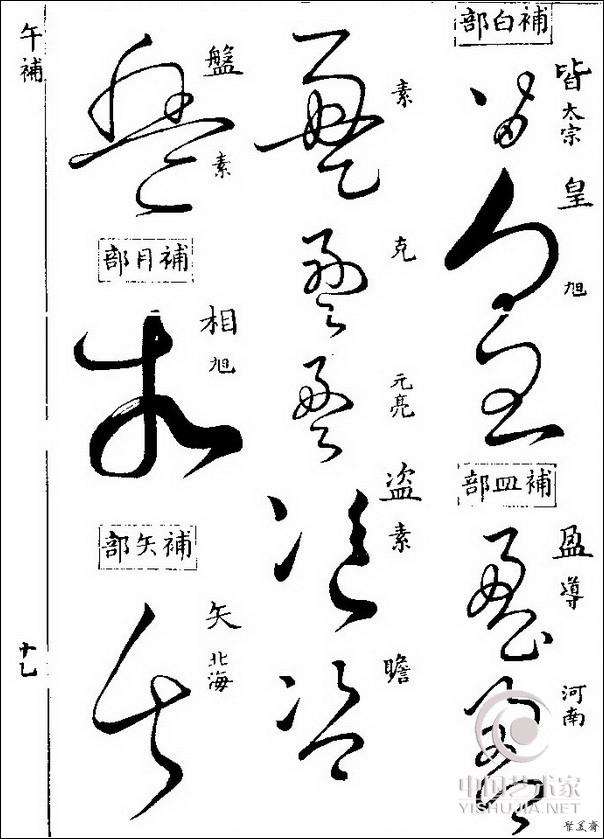 補白部
皆 太宗
皇 旭
補皿部
盈 導
河南
素
克
元亮
盗 素
瞻
盤 素
補月部
相 旭
補矢部
矢 北海
午補
十七
中国艺术家
YISHUJIA.NET